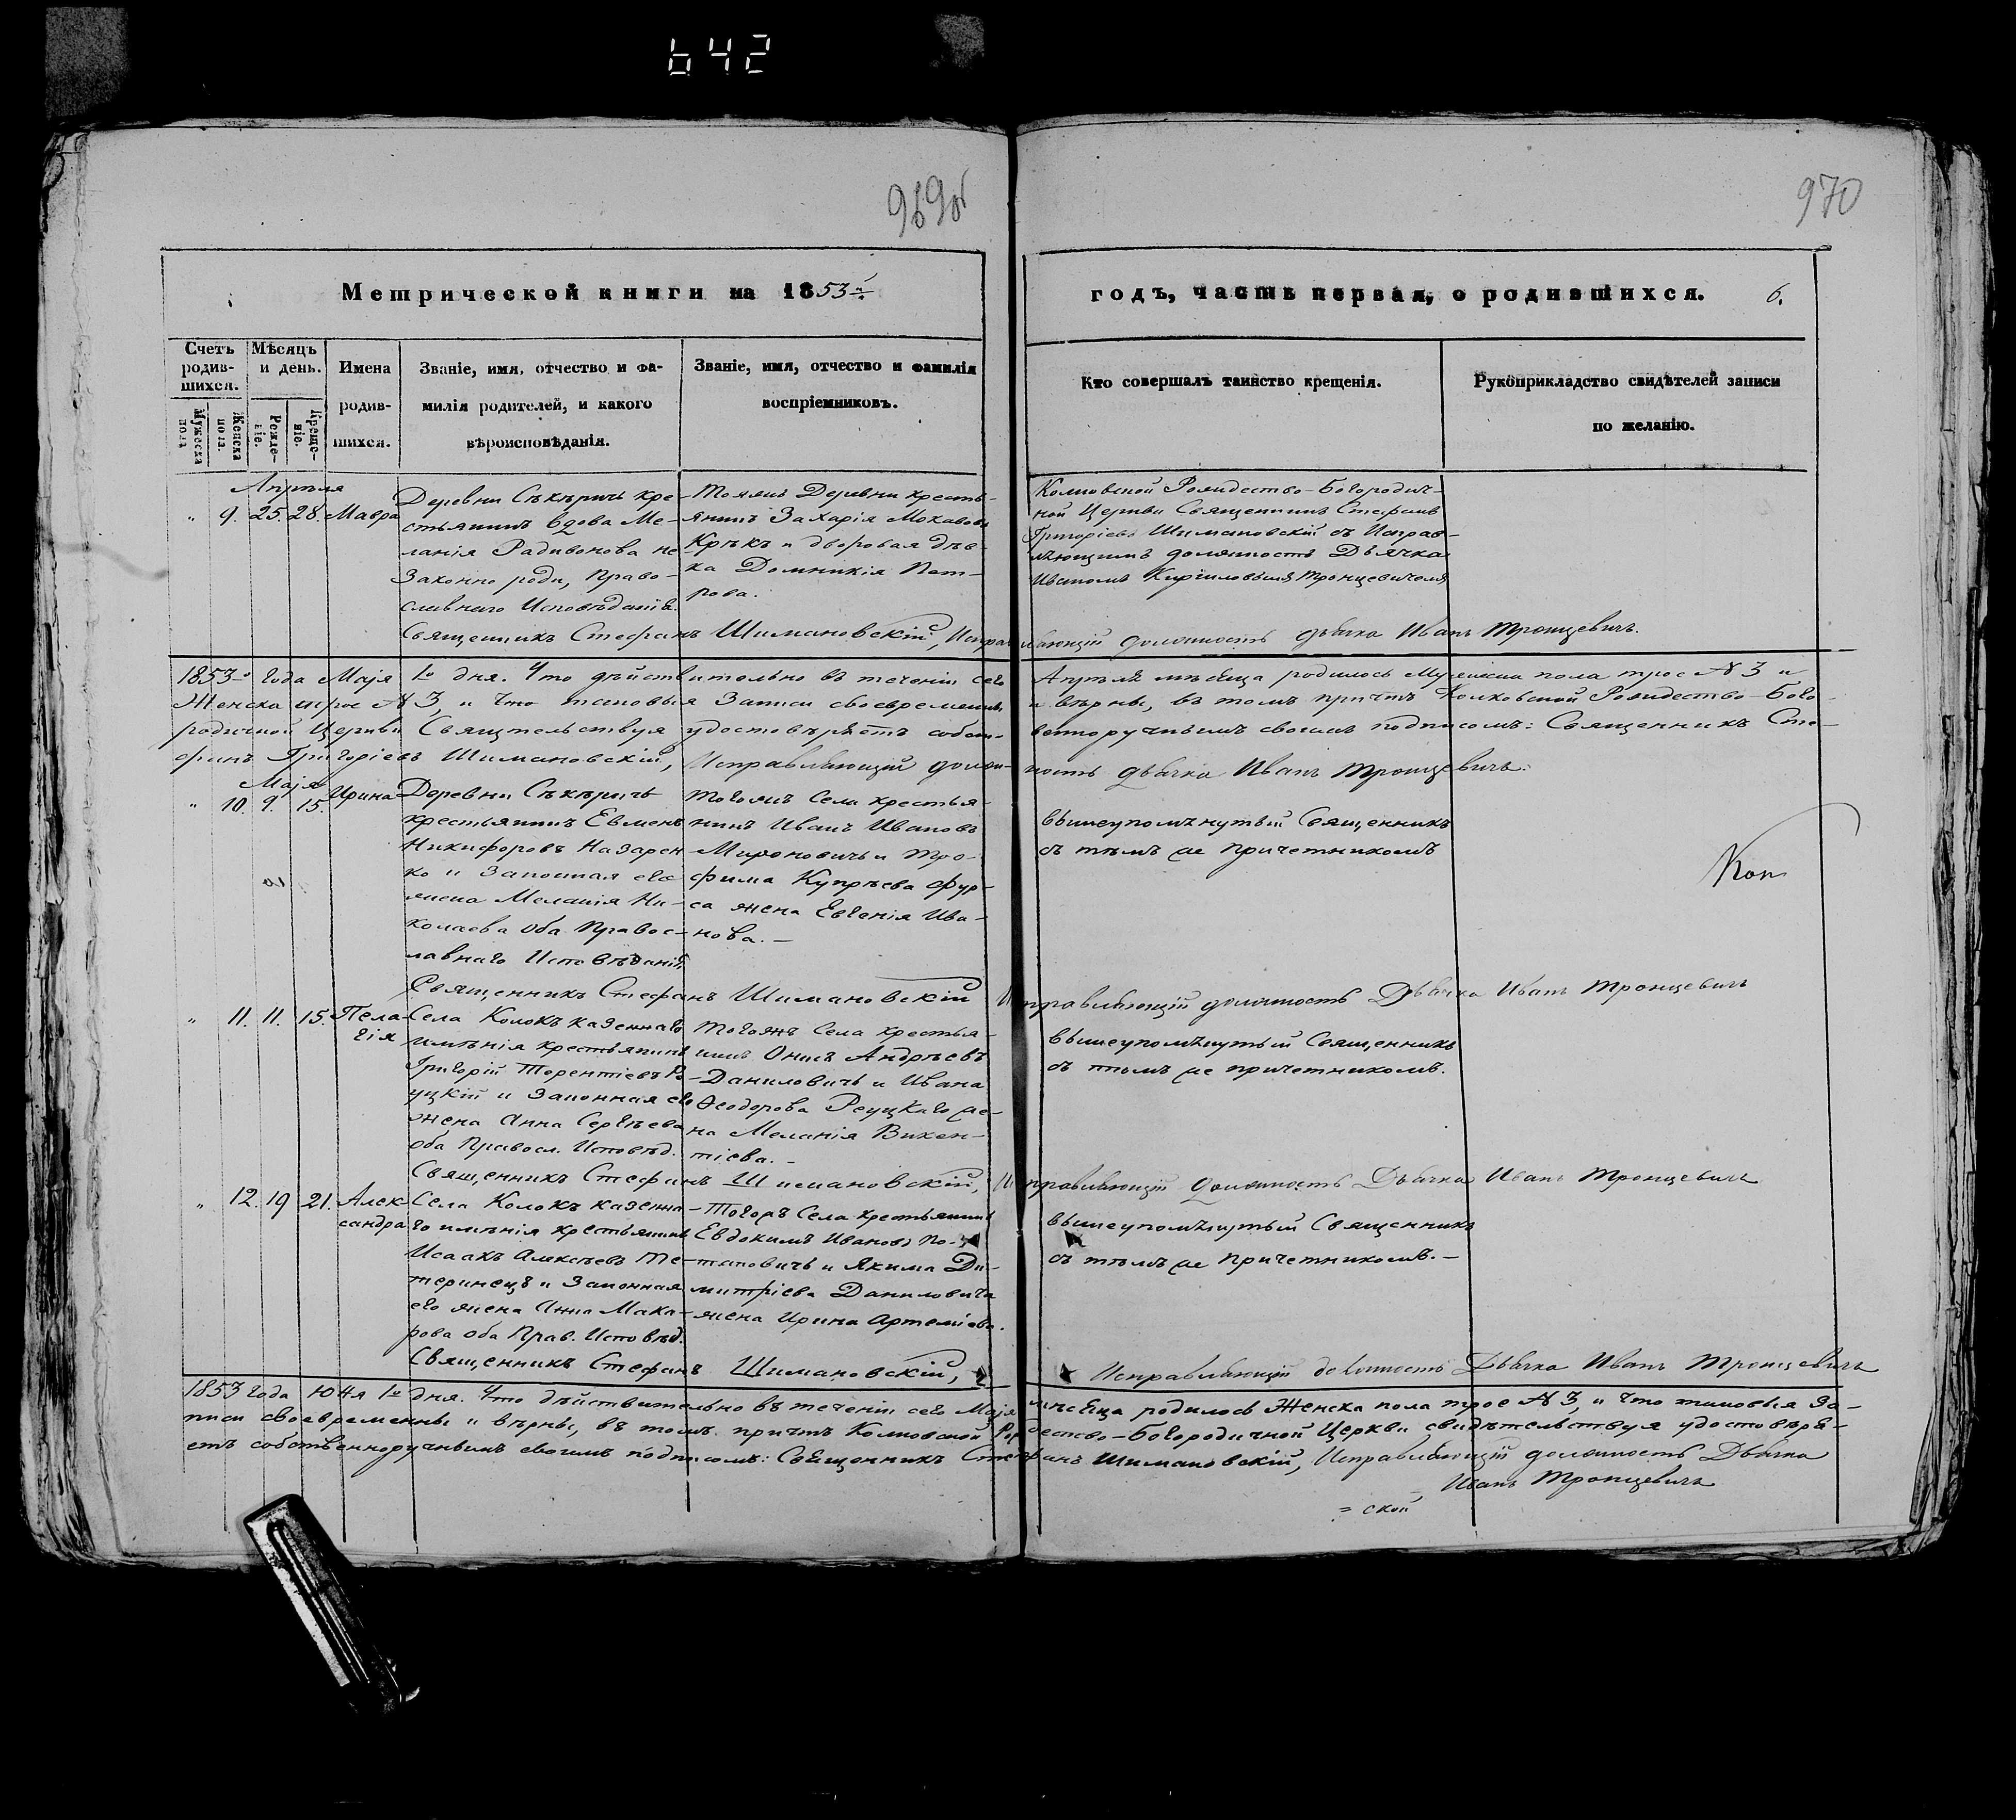 642
969об
970
Метрической книги на 1853й
годъ, часть первая, о родившихся.
6.
Счетъ родив-шихся.
Мужеска пола
Женска пола.
Мѣсяцъ и день.
Рожде-ніе.
Креще-ніе.
Имена
родив-
шихся.
Званіе, имя, отчество и фа-
милія родителей, и какого
вѣроисповѣданія.
Званіе, имя, отчество и фамилія
воспріемниковъ.
Кто совершалъ таинство крещенія.
Рукоприкладство свидѣтелей записи
по желанію.
Апрѣля
" 9. 25. 28. Мавра
Деревни Сѣкѣричъ кре-
стьянинъ вдова Ме-
ланія Радивонова не
законно роди, Право-
славнаго Исповѣданія.
Тояжъ Деревни кресть-
янинъ Захарія
Крѣкъ и дворовая дѣв-
ка Домникія Пет-
рова.
Колковской Рождество-Богородич-
ной Церкви Священникъ Стефанъ
Григоріевъ Шимановскій съ Исправ-
ляющимъ должность Дьячка
Иваномъ Кириловымъ Тронцевичемъ
Священникъ Стефанъ Шимановскій, Исправляющій должность дьячка Иванъ Тронцевичъ.
1853го года Маія 1го дня. Что дѣйствительно въ теченіи сего Апрѣля мѣсяца родилось Мужеска пола трое № 3 и
Женска трое № 3, и что таковыя Записи своевременны и вѣрны, въ томъ причтъ Колковской Рождество-Бого-
родичной Церкви Свидѣтельствуя удостовѣряетъ собст-венноручнымъ своимъ подписомъ: Священникъ Сте-
фанъ Григоріевъ Шимановскій, Исправляющій долж-ность дьячка Иванъ Тронцевичъ.
Маія
" 10. 9. 15. Ирина
Деревни Сѣкѣричъ
крестьянинъ Евменъ
Никифоровъ Назарен
ко и Законная его
жена Меланія Ни-
колаева Оба Правос-
лавнаго Исповѣданія
Тогожъ Села крестья-
нинъ Иванъ Ивановъ
Мироновичъ и Тро-
фима Купрѣева Фур-
са жена Евгенія Ива-
нова.-
вышеупомянутый Священникъ
съ тѣмъ же причетникомъ
Коп
Священникъ Стефанъ Шимановскій Исправляющій должность Дьячка Иванъ Тронцевичъ
" 11. 11. 15. Пела-
гія
Села Колокъ казеннаго
имѣнія крестьянинъ
Григорій Терентіевъ Ре-
уцкій и Законная его
жена Анна Сергѣева
Оба Правосл. Исповѣд.
Тогожъ Села крестья-
нинъ Онисъ Андрѣевъ
Даниловичъ и Ивана
Феодорова Реуцкаго же-
на Меланія Викен-
тіева.-
вышеупомянутый Священникъ
съ тѣмъ же причетникомъ.
Священникъ Стефанъ Шимановскій, Исправляющій должность Дьячка Иванъ Тронцевичъ
" 12. 19 21. Алек-
сандра
Села Колокъ казенна-
го имѣнія крестьянинъ
Исаакъ Алексѣевъ Те-
теринецъ и Законная
его жена Анна Мака-
рова оба Прав. Исповѣд.
Тогожъ Села крестьянинъ
Евдокимъ Ивановъ По-
таповичъ и Якима Ди-
митріева Даниловича
жена Ирина Артеміева.
вышеупомянутый Священникъ
съ тѣмъ же причетникомъ.-
Священникъ Стефанъ Шимановскій, Исправляющій должность Дьячка Иванъ Тронцевичъ
1853 года Юнія 1го дня. Что дѣйствительно въ теченіи сего Маія мѣсяца родилось Женска пола трое № 3, и что таковыя За-
писи своевременны и вѣрны, въ томъ причтъ Колковской Рождество-Богородичной Церкви свидѣтельствуя удостовѣря-
етъ собственноручнымъ своимъ подписомъ: Священникъ Стефанъ Шимановскій, Исправляющій должность Дьячка
Иванъ Тронцевичъ
= ской